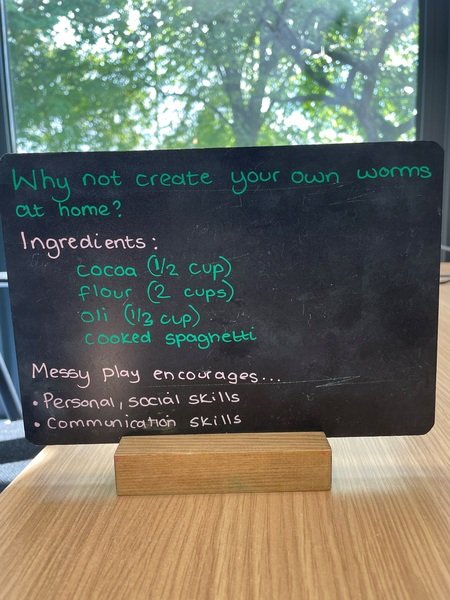 Why not create your own worms
at home?
Ingredients:
cocoa (1/2 cup)
flour (2 cups)
oli (1/3 cup)
cooked spaghetti
Messy play encourages...
• Personal, social skills
• Communication skills